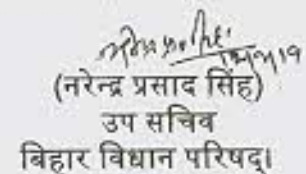 (नरेन्द्र प्रसाद सिंह)
उप सचिव
बिहार विधान परिषद्।